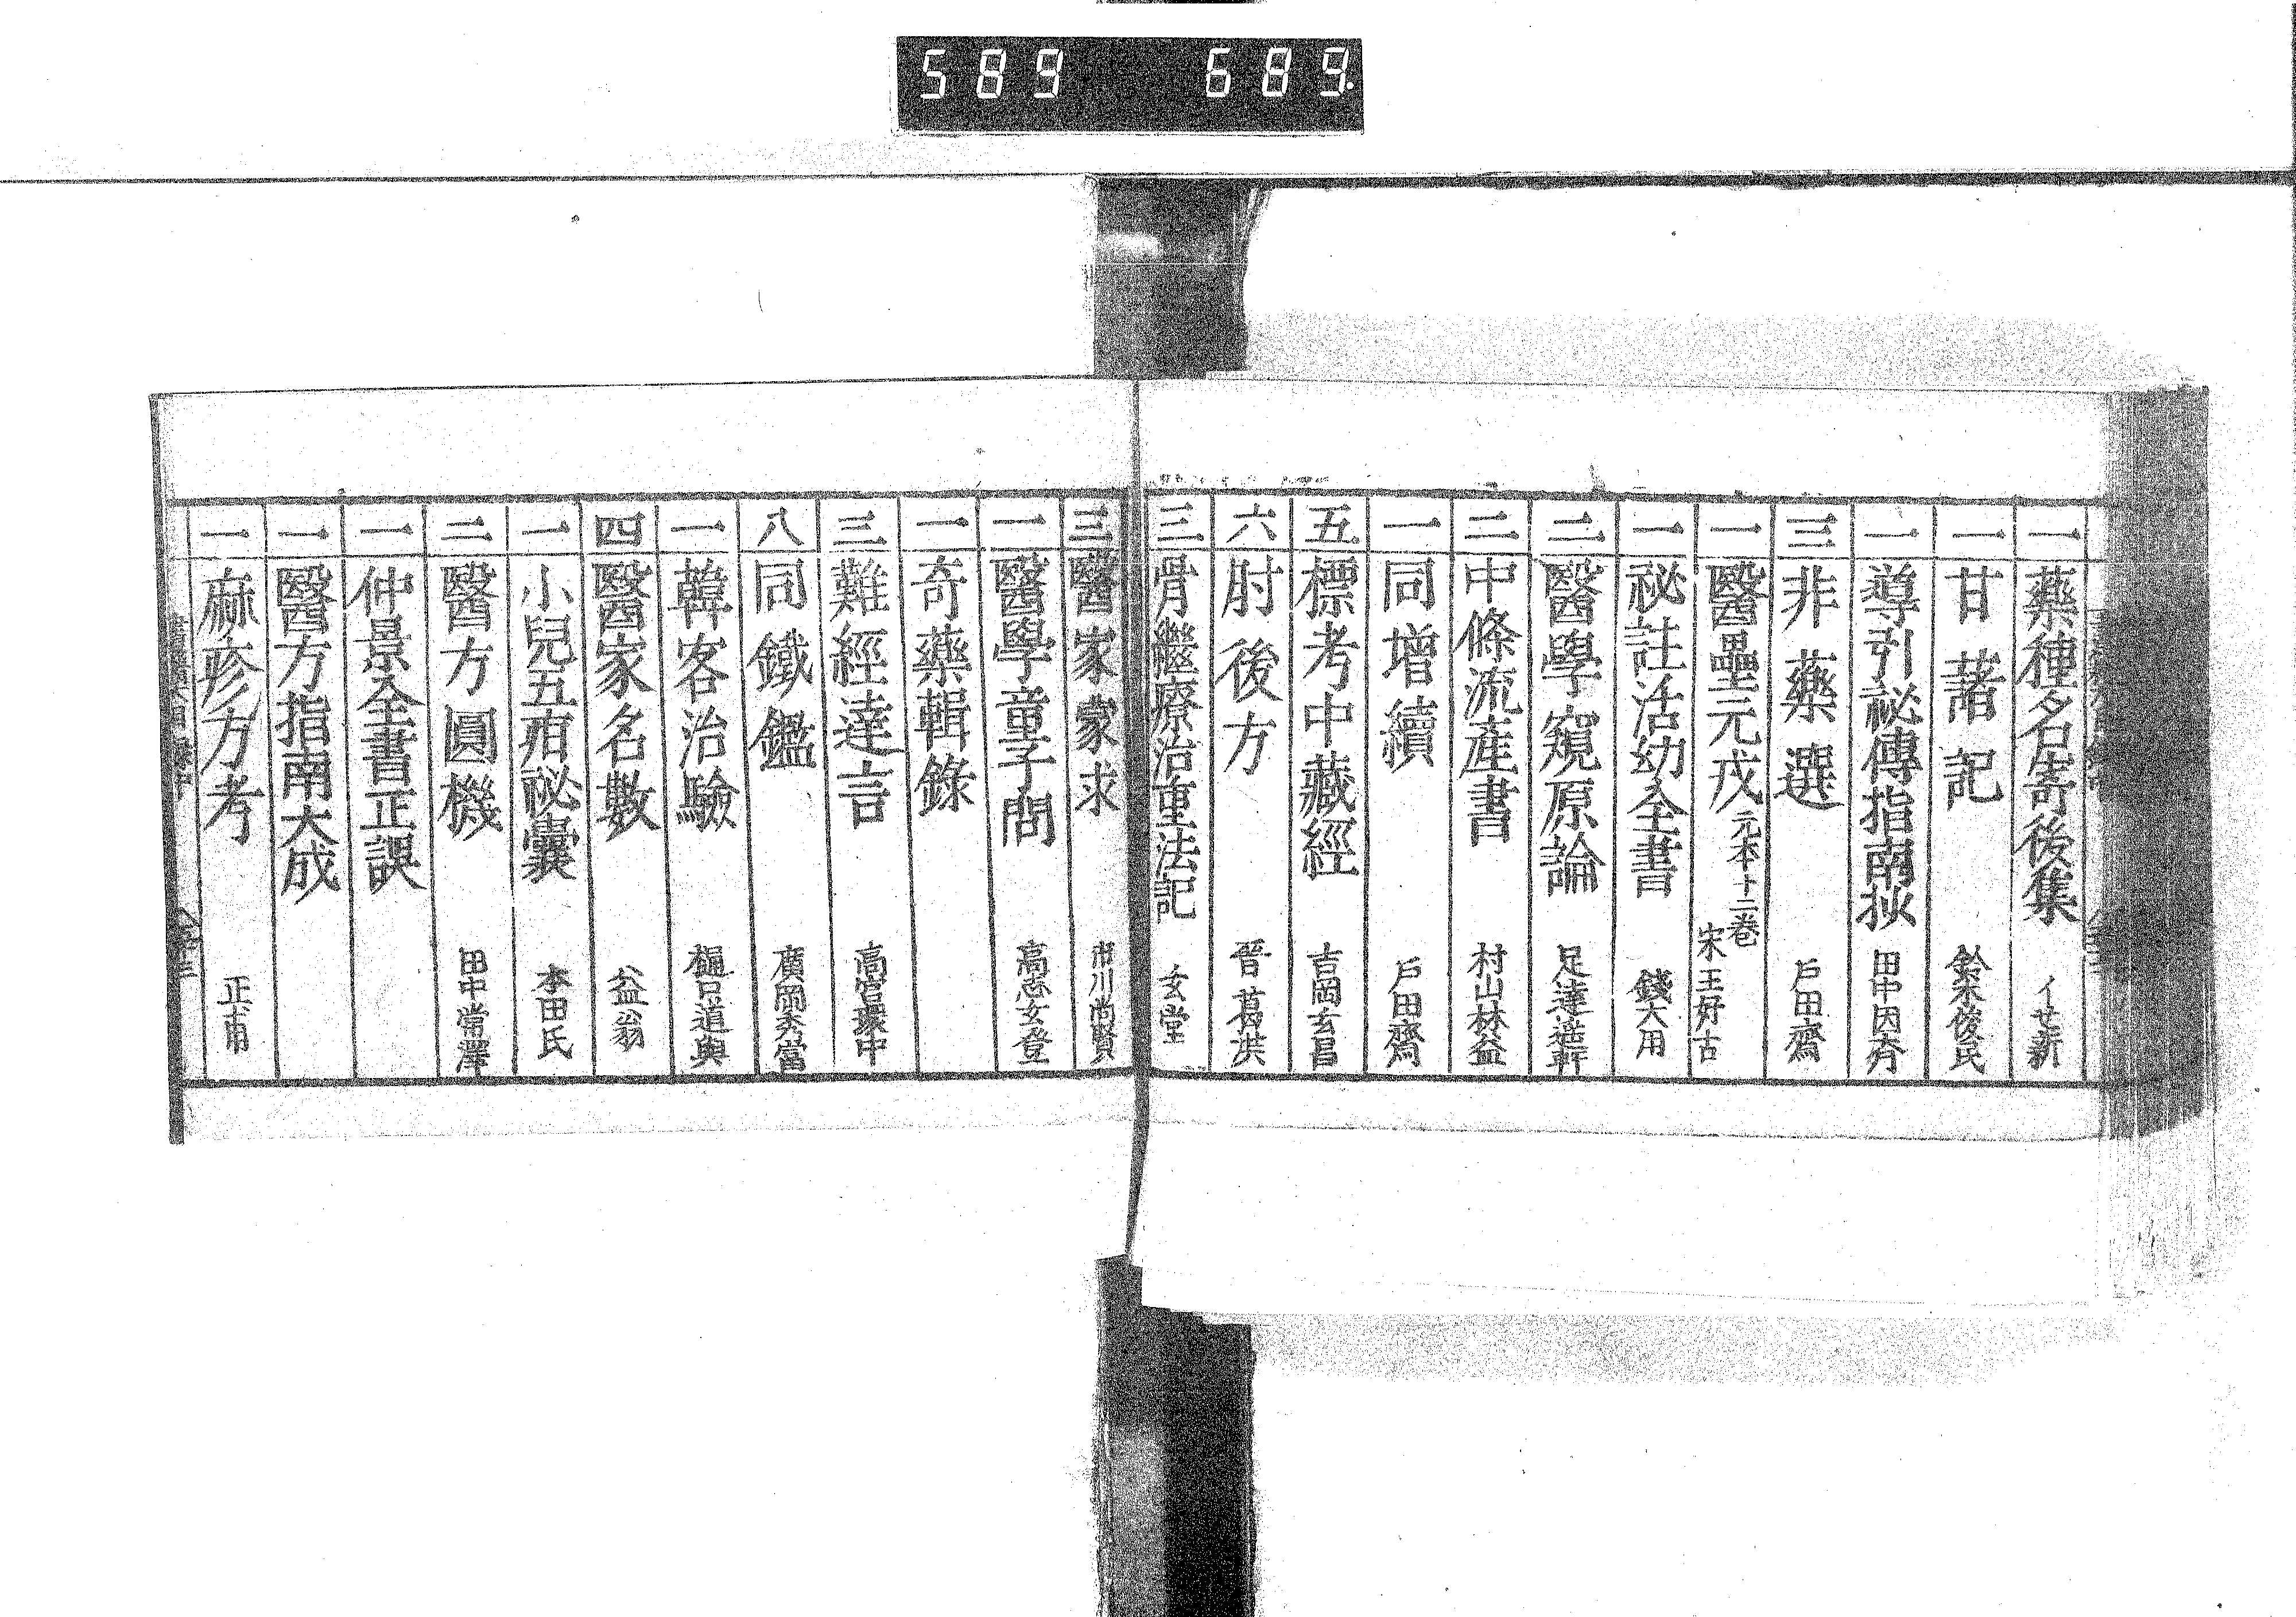 589 689.
一 藥種名寄後集 イせ新
一 甘藷記 鈴木俊民
一 導引祕傳指南抄 田中因斉
三 非藥選 戶田齋
一 醫壘元戎 元本十二卷 宋王好古
一 祕註活幼全書 錢大用
二 醫學窺原論 足達遥軒
二 中條流產書 村山林益
一 同增續 戶田齋
五 標考中藏經 吉岡玄昌
六 肘後方 晉葛洪
三 骨繼療治重法記 玄堂
三 醫家蒙求 市川尚賢
一 醫學童子問 高志玄登
一 奇藥輯錄
三 難經達言 高宮環中
八 同鐵鑑 廣岡秀當
一 韓客治驗 樋口道與
四 醫家名數 益翁
一 小兒五疳祕囊 本田氏
二 醫方圓機 田中常澤
一 仲景全書正誤
一 醫方指南大成
一 麻疹方考 正甫